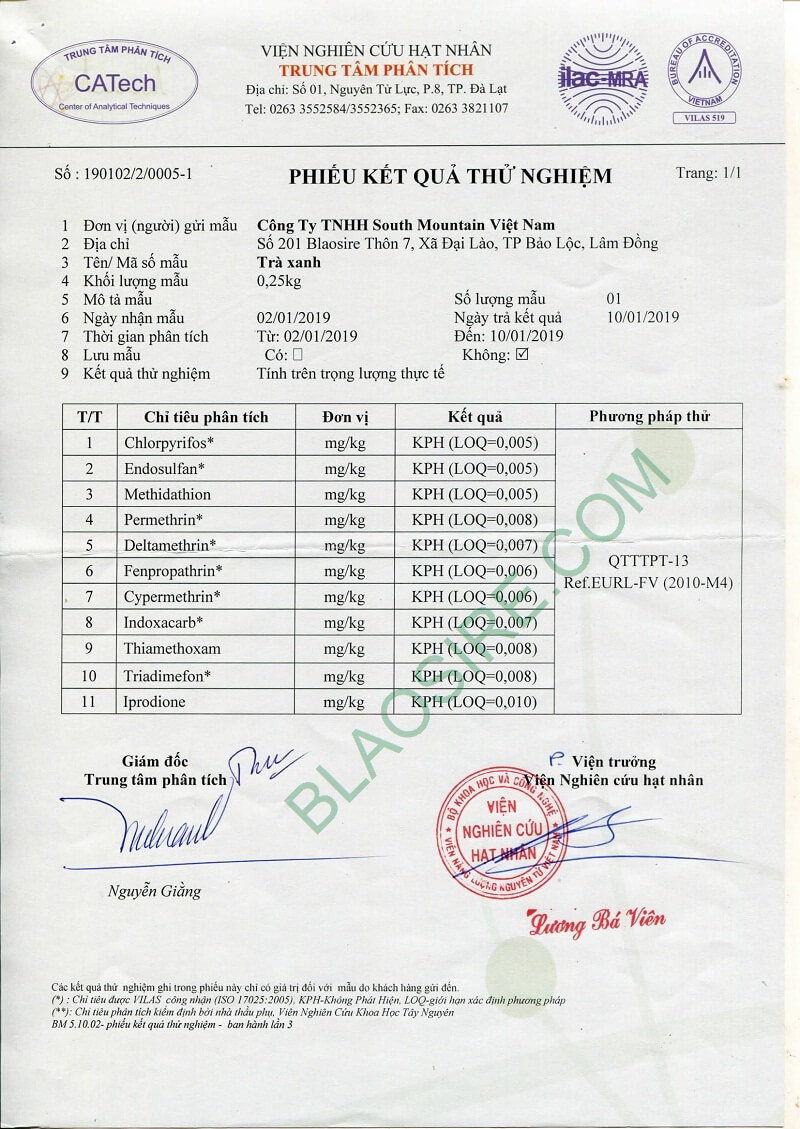 TRUNG TÂM PHÂN TÍCH
CATech
Center of Analytical Techniques
VIỆN NGHIÊN CỨU HẠT NHÂN
TRUNG TÂM PHÂN TÍCH
Địa chỉ: Số 01, Nguyên Tử Lực, P.8, TP. Đà Lạt
Tel: 0263 3552584/3552365; Fax: 0263 3821107
ilac-MRA
BUREAU OF ACCREDITATION
VIETNAM
VILAS 519
Số : 190102/2/0005-1
PHIẾU KẾT QUẢ THỬ NGHIỆM
Trang: 1/1
1 Đơn vị (người) gửi mẫu Công Ty TNHH South Mountain Việt Nam
2 Địa chỉ Số 201 Blaosire Thôn 7, Xã Đại Lào, TP Bảo Lộc, Lâm Đồng
3 Tên/ Mã số mẫu Trà xanh
4 Khối lượng mẫu 0,25kg
5 Mô tả mẫu Số lượng mẫu 01
6 Ngày nhận mẫu 02/01/2019 Ngày trả kết quả 10/01/2019
7 Thời gian phân tích Từ: 02/01/2019 Đến: 10/01/2019
8 Lưu mẫu Có: ☐ Không: ☑
9 Kết quả thử nghiệm Tính trên trọng lượng thực tế
T/T Chỉ tiêu phân tích Đơn vị Kết quả Phương pháp thử
1 Chlorpyrifos* mg/kg KPH (LOQ=0,005)
2 Endosulfan* mg/kg KPH (LOQ=0,005)
3 Methidathion mg/kg KPH (LOQ=0,005)
4 Permethrin* mg/kg KPH (LOQ=0,008)
5 Deltamethrin* mg/kg KPH (LOQ=0,007)
6 Fenpropathrin* mg/kg KPH (LOQ=0,006)
7 Cypermethrin* mg/kg KPH (LOQ=0,006)
8 Indoxacarb* mg/kg KPH (LOQ=0,007)
9 Thiamethoxam mg/kg KPH (LOQ=0,008)
10 Triadimefon* mg/kg KPH (LOQ=0,008)
11 Iprodione mg/kg KPH (LOQ=0,010)
QTTTPT-13
Ref.EURL-FV (2010-M4)
BLAOSIRE.COM
Giám đốc
Trung tâm phân tích
Nguyễn Giằng
P. Viện trưởng
Viện Nghiên cứu hạt nhân
BỘ KHOA HỌC VÀ CÔNG NGHỆ
VIỆN
NGHIÊN CỨU
HẠT NHÂN
VIỆN NĂNG LƯỢNG NGUYÊN TỬ VIỆT NAM
Lương Bá Viên
Các kết quả thử nghiệm ghi trong phiếu này chỉ có giá trị đối với mẫu do khách hàng gửi đến.
(*) : Chỉ tiêu được VILAS công nhận (ISO 17025:2005), KPH-Không Phát Hiện, LOQ-giới hạn xác định phương pháp
(**): Chỉ tiêu phân tích kiểm định bởi nhà thầu phụ, Viện Nghiên Cứu Khoa Học Tây Nguyên
BM 5.10.02- phiếu kết quả thử nghiệm - ban hành lần 3